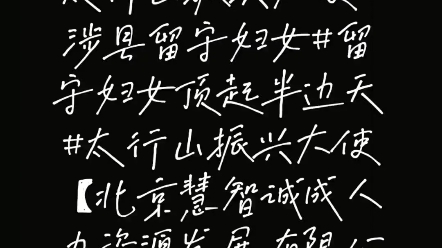 涉县留守妇女#留
守妇女顶起半边天
#太行山振兴大使
【北京慧智诚成人
力资源发展有限公